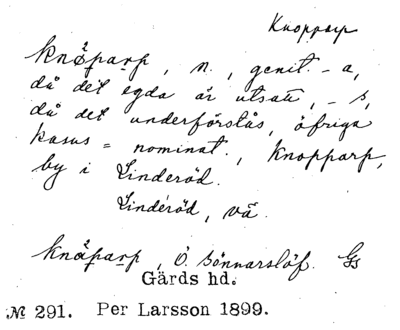 Knopparp
knǻparp, n., genit. -a,
då det egda är utsatt, -s,
då det underförstås, öfriga
kasus = nominat., Knopparp,
by i Linderöd.
Linderöd, vä.
knǻparp, Ö. Sönnarslöf. Gs
Gärds hd.
№ 291. Per Larsson 1899.